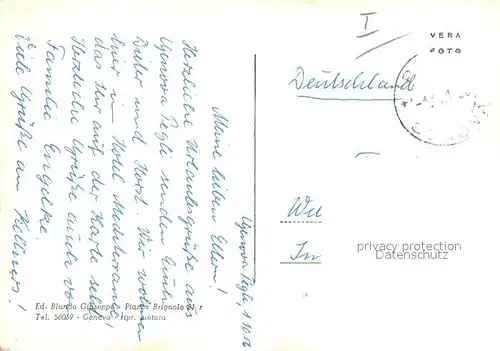 Genova Pegli, 1.10.56
Meine lieben Eltern!
Herzliche Urlaubsgrüße aus
Genova Pegli senden Euch
Dieter und Horst. Wir wohnen
hier im Hotel Mediterranee,
das Ihr auf der Karte seht.
Herzliche Grüße auch von
Familie Engelke.
Viele Grüße an Kellings!
I
VERA
FOTO
Deutschland
We
In
privacy protection
watermark
Ed. Blundo Giuseppe - Piazza Brignole r
Tel. 56069 - Genova - ripr. vietata